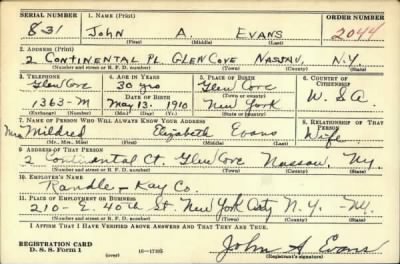 SERIAL NUMBER 1. NAME (Print) ORDER NUMBER
831 John A. Evans 2044
(First) (Middle) (Last)
2. ADDRESS (Print)
2 Continental Pl. Glen Cove Nassau, N.Y.
(Number and street or R. F. D. number) (Town) (County) (State)
3. TELEPHONE 4. AGE IN YEARS 5. PLACE OF BIRTH 6. COUNTRY OF CITIZENSHIP
Glen Cove 30 yrs Glen Cove
DATE OF BIRTH (Town or county)
1363-M May 13, 1910 New York U.S.A.
(Exchange) (Number) (Mo.) (Day) (Yr.) (State or country)
7. NAME OF PERSON WHO WILL ALWAYS KNOW YOUR ADDRESS 8. RELATIONSHIP OF THAT PERSON
Mrs Mildred Elizabeth Evans Wife
(Mr., Mrs., Miss) (First) (Middle) (Last)
9. ADDRESS OF THAT PERSON
2 Continental Ct. Glen Cove Nassau Ny
(Number and street or R. F. D. number) (Town) (County) (State)
10. EMPLOYER'S NAME
Randle - Kay Co.
11. PLACE OF EMPLOYMENT OR BUSINESS
210 - E. 40th St New York City N.Y. - Ny.
(Number and street or R. F. D. number) (Town) (County) (State)
I AFFIRM THAT I HAVE VERIFIED ABOVE ANSWERS AND THAT THEY ARE TRUE.
REGISTRATION CARD
D. S. S. Form 1 16—17105 John A Evans
(Registrant's signature)